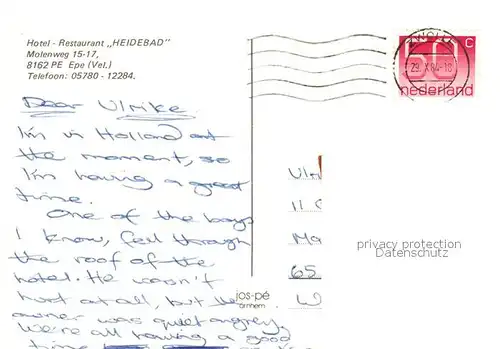 Hotel - Restaurant „HEIDEBAD"
Molenweg 15-17,
8162 PE Epe (Vel.)
Telefoon: 05780 - 12284.
50 c
nederland
29.X.84-10
Dear Ulrike
I'm in Holland at
the moment, so
I'm having a great
time.
One of the boys
I know, fell through
the roof of the
hotel. He wasn't
hurt at all, but the
owner was quiet angrey
We're all having a good
time
Ul
11
Ma
65
W
privacy protection
Datenschutz
jos-pé
arnhem